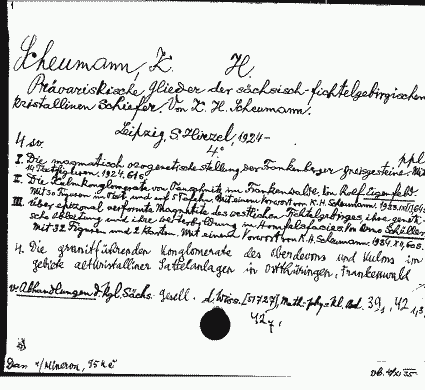 Scheumann, K. H.
Prävariskische Glieder der sächsisch-fichtelgebirgischen
kristallinen Schiefer. Von K. H. Scheumann.
Leipzig, S. Hirzel, 1924-
4°
4 sv. ppl
I. Die magmatisch orogenetische Stellung der Frankenberger Gneisgesteine. Mit
14 Textfiguren. 1924. 61 S
II. Die Kulmkonglomerate von Teuschnitz im Frankenwalde. Von Rolf Eigenfeld.
Mit 30 Figuren im Text und auf 5 Tafeln. Mit einem Vorwort von K. H. Scheumann. 1933.
III. Über epizonal verformte Magmatite des westlichen Fichtelgebirges, ihre geneti-
sche Ableitung und ihre Umwandlung in Hornfelsfacies. Von Arno Schüller
Mit 32 Figuren und 2 Karten. Mit einem Vorwort von K. H. Scheumann. 1934. XV, 60 S.
4. Die granitführenden Konglomerate des Oberdevons und Kulms im
gebiete altkristalliner Sattelanlagen in Ostthüringen, Frankenwald
v. Abhandlungen d. kgl. Sächs. Gesell. d. Wiss. [57727] Math.-phys. Kl. Bd. 39,1, 42 1,3,
42 7,
Dar v/Mineron,